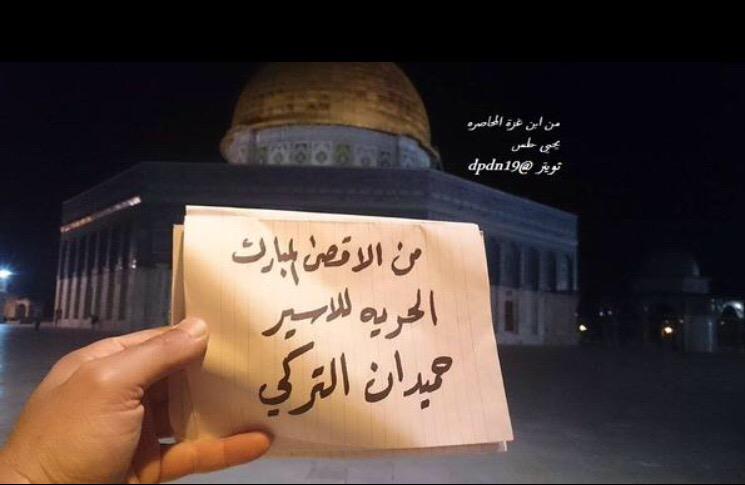 من ابن غزة المحاصره
يحيى حلس
تويتر @dpdn19
من الاقصى المبارك
الحريه للاسير
حميدان التركي